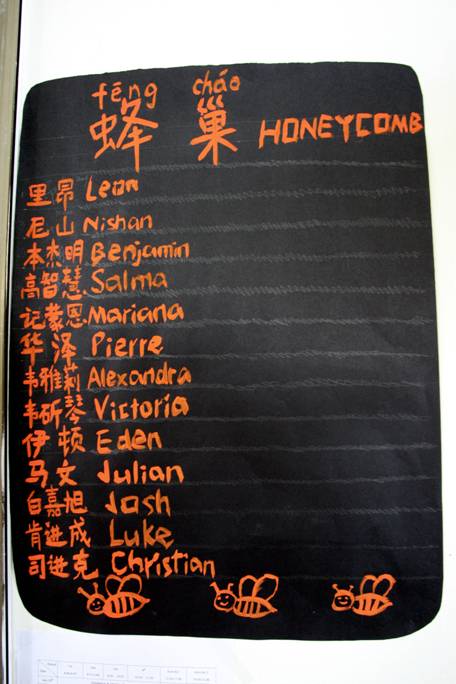 fēng cháo
蜂巢 HONEYCOMB
里昂 Leon
尼山 Nishan
本杰明 Benjamin
高智慧 Salma
记蒙恩 Mariana
华泽 Pierre
韦雅莉 Alexandra
韦斫琴 Victoria
伊顿 Eden
马文 Julian
白嘉旭 Josh
肯进成 Luke
司进克 Christian